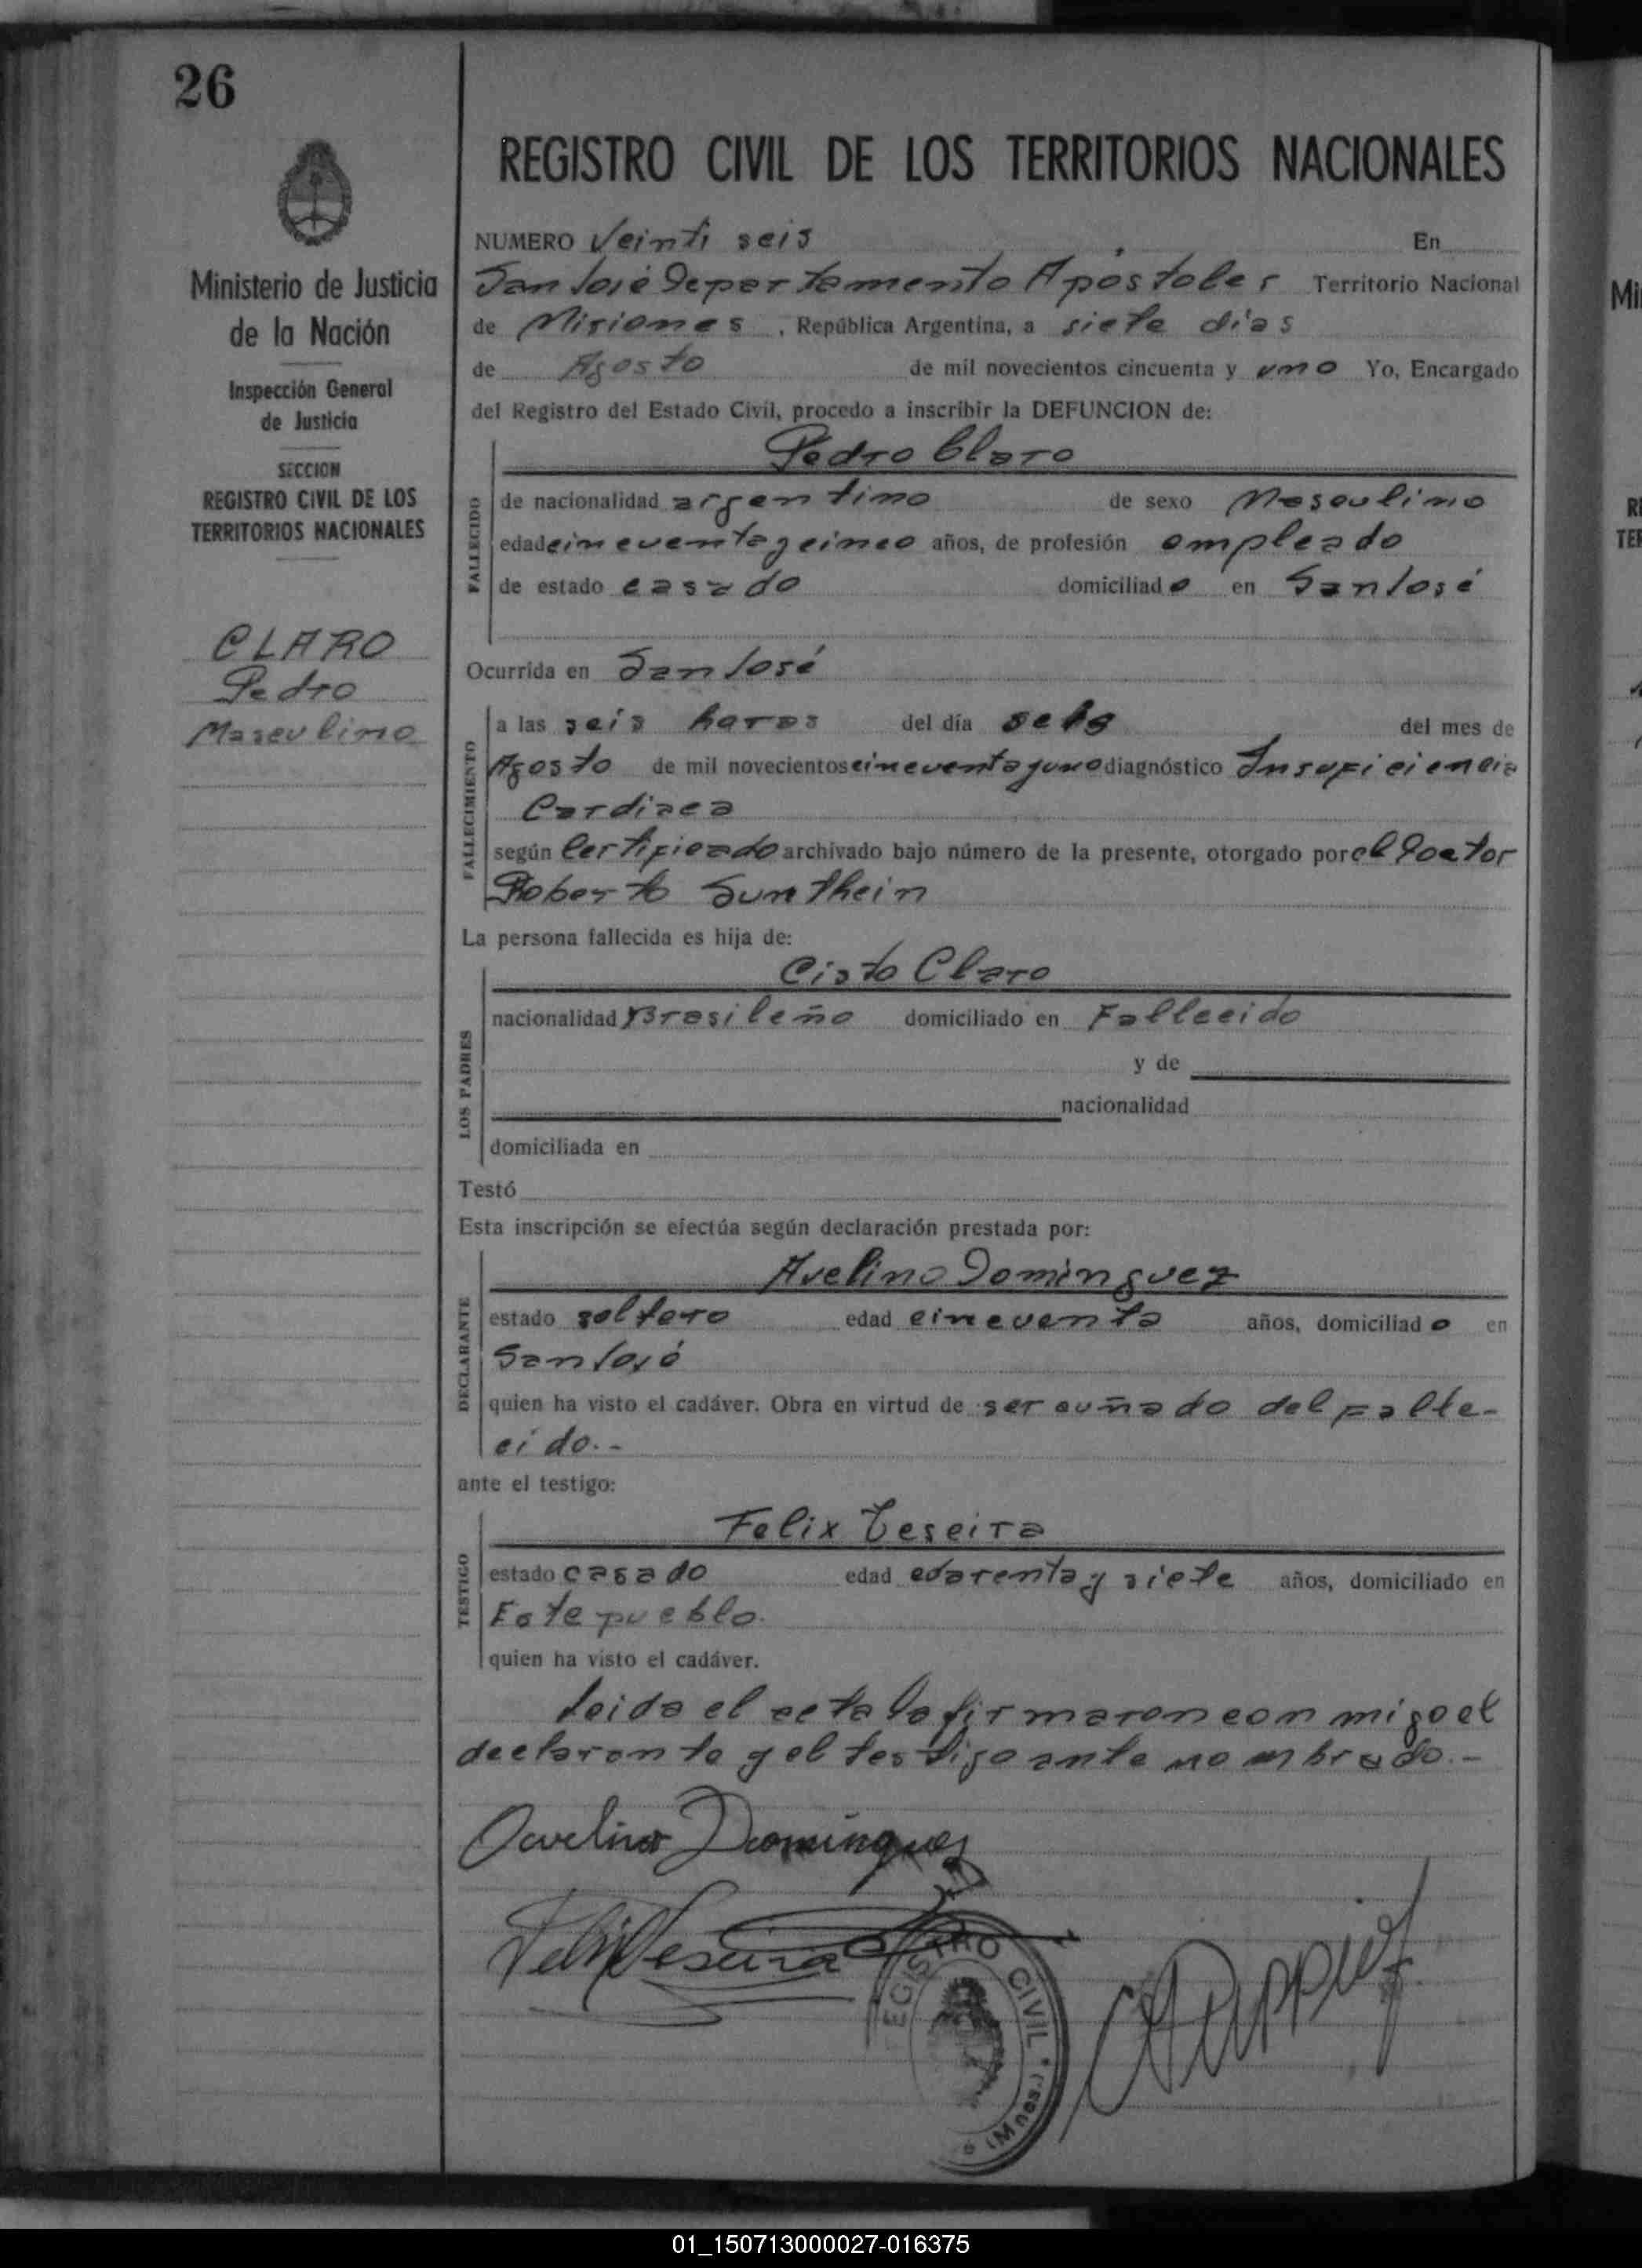 26
Ministerio de Justicia
de la Nación
Inspección General
de Justicia
SECCION
REGISTRO CIVIL DE LOS
TERRITORIOS NACIONALES
CLARO
Pedro
Masculino
REGISTRO CIVIL DE LOS TERRITORIOS NACIONALES
NUMERO Veinti seis En
San José Departamento Apóstoles Territorio Nacional
de Misiones, República Argentina, a siete días
de Agosto de mil novecientos cincuenta y uno Yo, Encargado
del Registro del Estado Civil, procedo a inscribir la DEFUNCION de:
Pedro Claro
FALLECIDO
de nacionalidad argentino de sexo Masculino
edad cincuenta y cinco años, de profesión empleado
de estado casado domiciliado en San José
Ocurrida en San José
FALLECIMIENTO
a las seis horas del día seis del mes de
Agosto de mil novecientos cincuenta y uno diagnóstico Insuficiencia
Cardiaca
según Certificado archivado bajo número de la presente, otorgado por el Doctor
Roberto Sunthein
La persona fallecida es hija de:
LOS PADRES
Cisto Claro
nacionalidad Brasileño domiciliado en Fallecido
y de
nacionalidad
domiciliada en
Testó
Esta inscripción se efectúa según declaración prestada por:
DECLARANTE
Avelino Dominguez
estado soltero edad cincuenta años, domiciliado en
San José
quien ha visto el cadáver. Obra en virtud de ser cuñado del falle-
cido.-
ante el testigo:
TESTIGO
Felix Teseira
estado casado edad cuarenta y siete años, domiciliado en
Este pueblo.
quien ha visto el cadáver.
Leida el acta la firmaron con migo el
declarante y el testigo ante nombrado.-
Avelino Dominguez
Felix Teseira
REGISTRO CIVIL
(Mnes.)
01_150713000027-016375